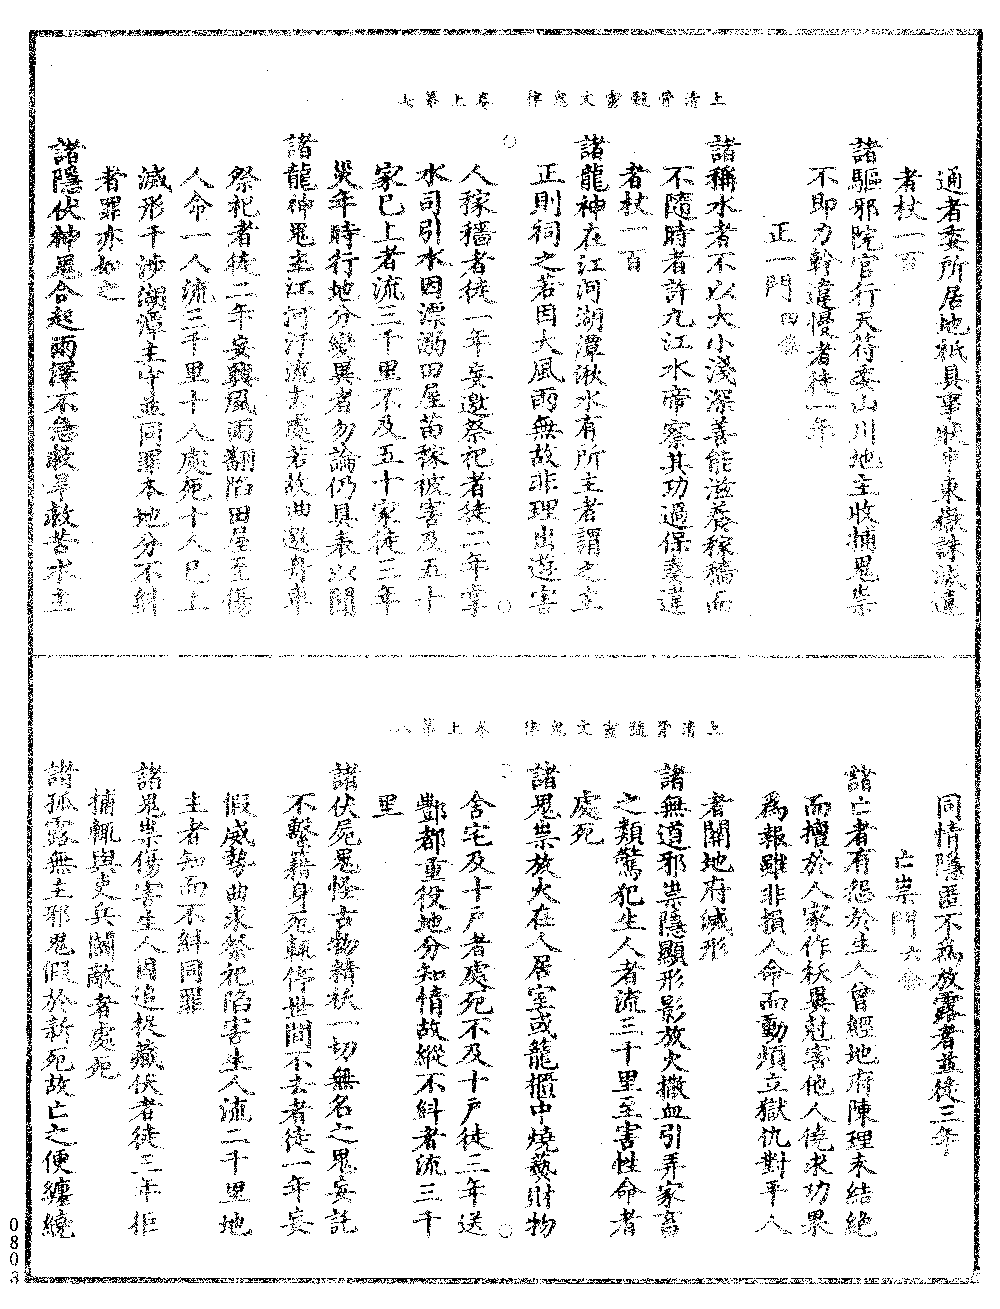 上清骨髓靈文鬼律　卷上第七
通者委所居地祇具事狀申東嶽誅滅違
者杖一百
諸驅邪院官行天符委山川地主收捕鬼祟
不即力幹違慢者徒一年
正一門四條
諸稱水者不以大小淺深善能滋養稼穡而
不隨時者許九江水帝察其功過保奏違
者杖一百
諸龍神在江河湖潭湫水有所主者謂之立
正則祠之若因大風雨無故非理出遊害
人稼穡者徒一年妄邀祭祀者徒二年掌
水司引水因漂溺田屋苗稼被害及五十
家已上者流三千里不及五十家徒三年
災年時行地分變異者勿論仍具表以聞
諸龍神鬼主江河汙流去處若故曲邀舟車
祭祀者徒二年妄興風雨翻陷田屋至傷
人命一人流三千里十人處死十人已上
滅形干涉湖潭主守並同罪本地分不糾
者罪亦如之
諸隱伏神鬼合起雨澤不急救旱救苦水主
上清骨髓靈文鬼律　卷上第八
同情隱匿不為放露者並徒三年
亡祟門六條
諸亡者有怨於生人曾經地府陳理未結絕
而擅於人家作祅異尅害他人僥求功果
為報雖非損人命而動煩立獄仇對平人
者關地府滅形
諸無道邪祟隱顯形影放火撒血引弄家畜
之類驚犯生人者流三千里至害性命者
處死
諸鬼祟放火在人居室或籠櫃中燒爇財物
舍宅及十戶者處死不及十戶徒三年送
酆都重役地分知情故縱不糾者流三千
里
諸伏屍鬼怪古物精祅一切無名之鬼妄託
不繫籍身死輒停世間不去者徒一年妄
假威勢曲求祭祀陷害生人流二千里地
主者知而不糾同罪
諸鬼祟傷害生人因追捉藏伏者徒三年拒
捕輒與吏兵鬭敵者處死
諸孤露無主邪鬼假於新死故亡之便纏繞
0803